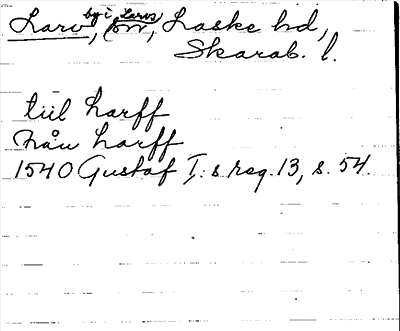 Larv, by i Larvs sn, Laske hd,
Skarab. l.
till harff
Från harff
1540 Gustaf I:s reg. 13, s. 54.